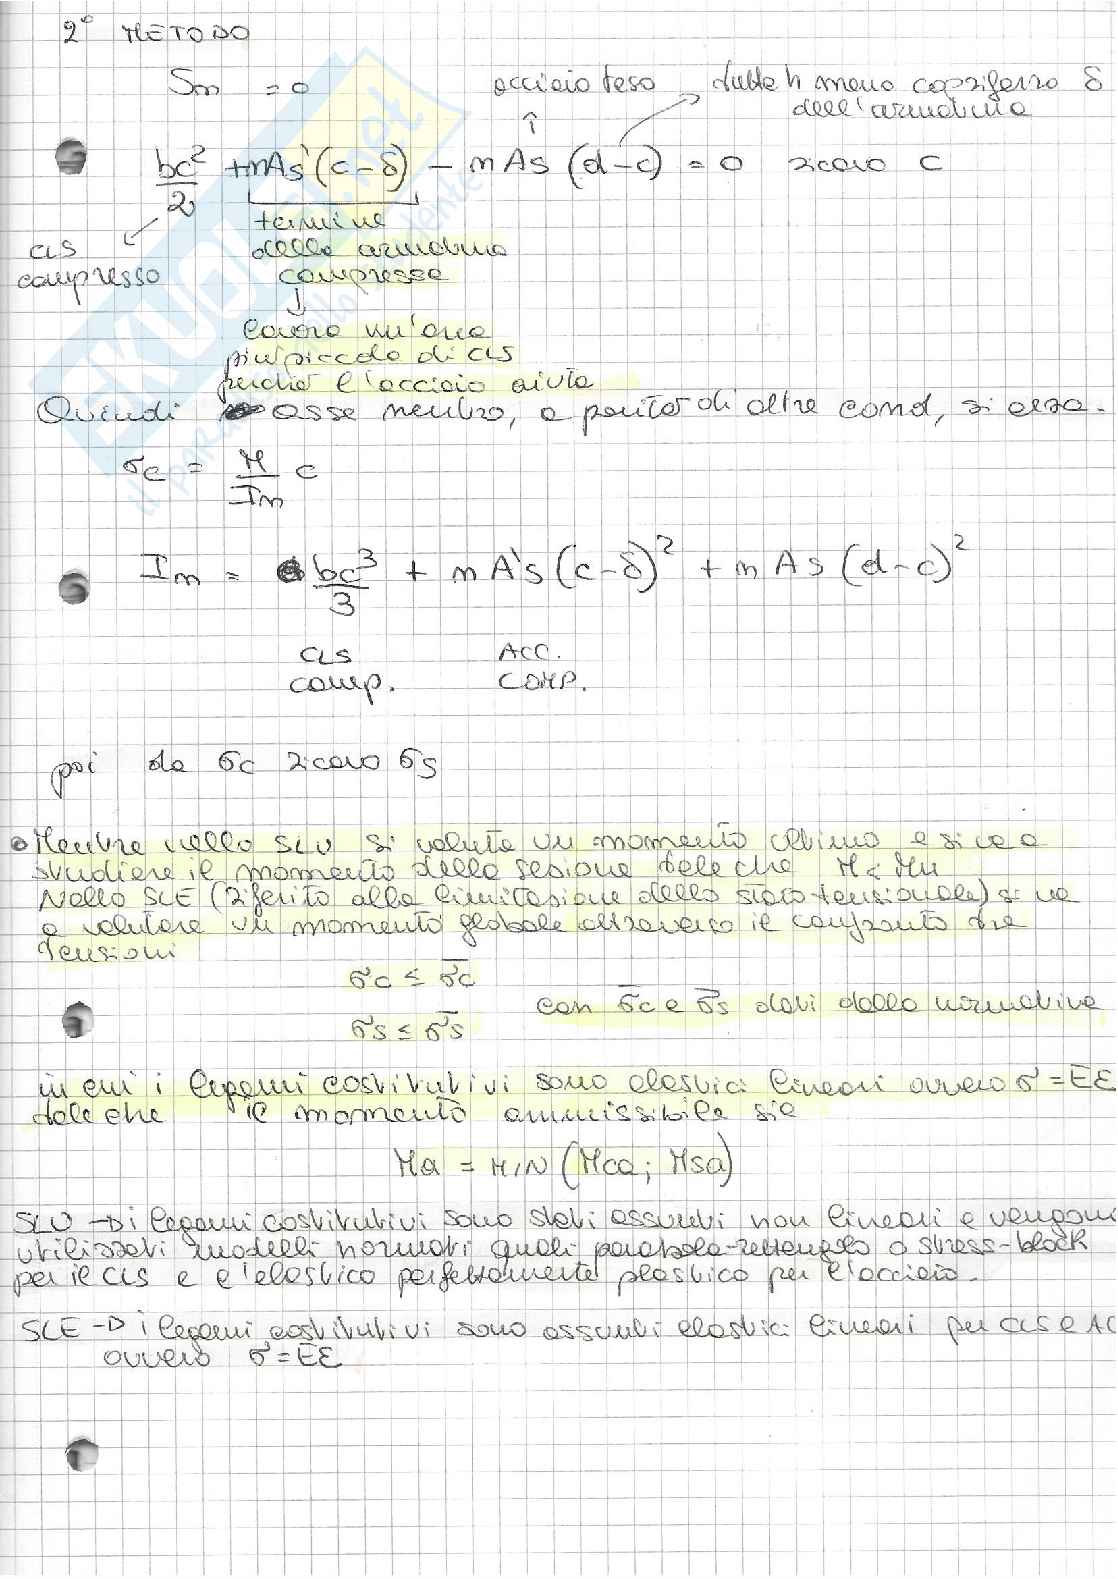 2° METODO
Sm = 0
acciaio teso
tutta h meno copriferro δ
dell'armatura
bc²/2 + mA's (c-δ) - mAs (d-c) = 0 ricavo c
cls
compresso
termine
della armatura
compressa
↓
lavora un'area
piu' piccola di cls
perchè l'acciaio aiuta
Quindi asse neutro, a parità di altre cond, si alza.
σc = M/Im c
Im = bc³/3 + mA's (c-δ)² + mAs (d-c)²
cls
comp.
ACC.
COMP.
poi da σc ricavo σs
• Mentre nello SLU si valuta un momento ultimo e si va a
studiare il momento della sezione tale che M < Mu
Nello SLE (riferito alla limitazione dello stato tensionale) si va
a valutare un momento globale attraverso il confronto tra
tensioni
σc ≤ σ̄c
σs ≤ σ̄s
con σ̄c e σ̄s dati dalla normativa
in cui i legami costitutivi sono elastici lineari ovvero σ = Eε
tale che il momento ammissibile sia
Ma = MIN (Mca; Msa)
SLU → i legami costitutivi sono stati assunti non lineari e vengoni
utilizzati modelli normati quali parabola-rettangolo o stress-block
per il cls e e l'elastico perfettamente plastico per l'acciaio.
SLE → i legami costitutivi sono assunti elastici lineari per cls e AC
ovvero σ = Eε